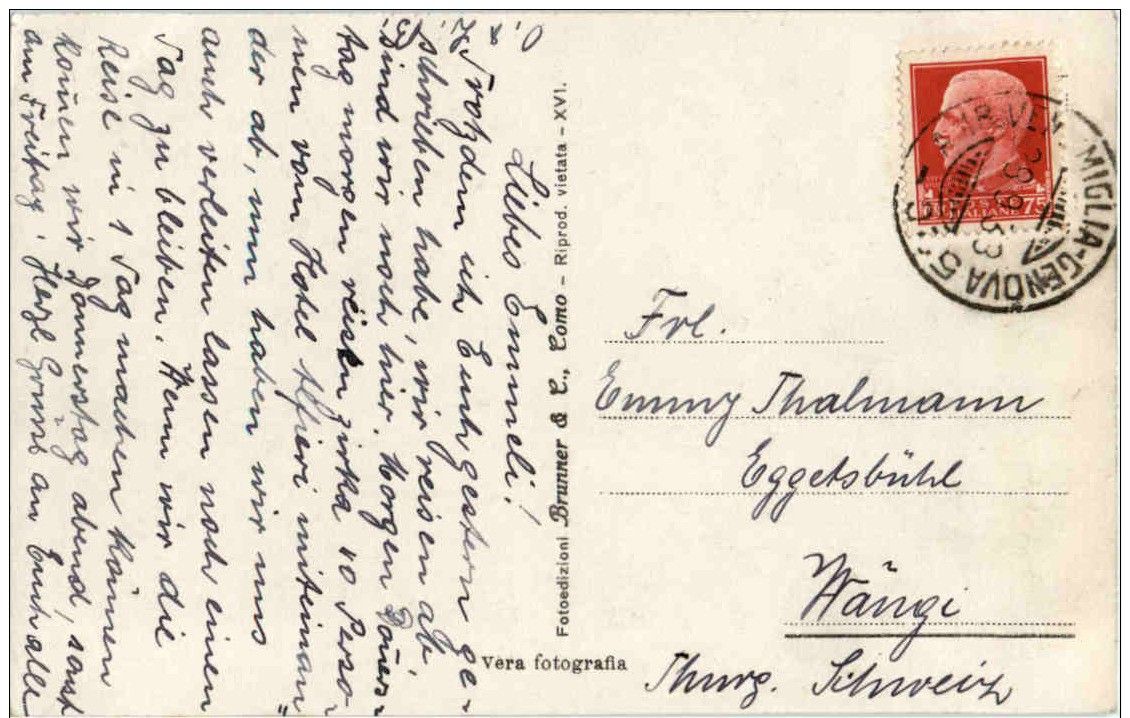 Liebes Emmeli!
Trotzdem ich Euch gestern ge-
schrieben habe, wir reisen ab
sind wir noch hier. Morgen Donners-
tag morgen reisen zirka 10 Perso-
nen vom Hotel Alfieri miteinan-
der ab, nun haben wir uns
auch verleiten lassen noch einen
Tag zu bleiben. Wenn wir die
Reise in 1 Tag machen können
können wir Donnerstag abend, sonst
am Freitag. Herzl Gruss an Euch alle
Fotoedizioni Brunner & C., Como - Riprod. vietata - XVI.
Vera fotografia
75
VENTIMIGLIA-GENOVA 5
Frl.
Emmy Thalmann
Eggetsbühl
Wängi
Thurg. Schweiz